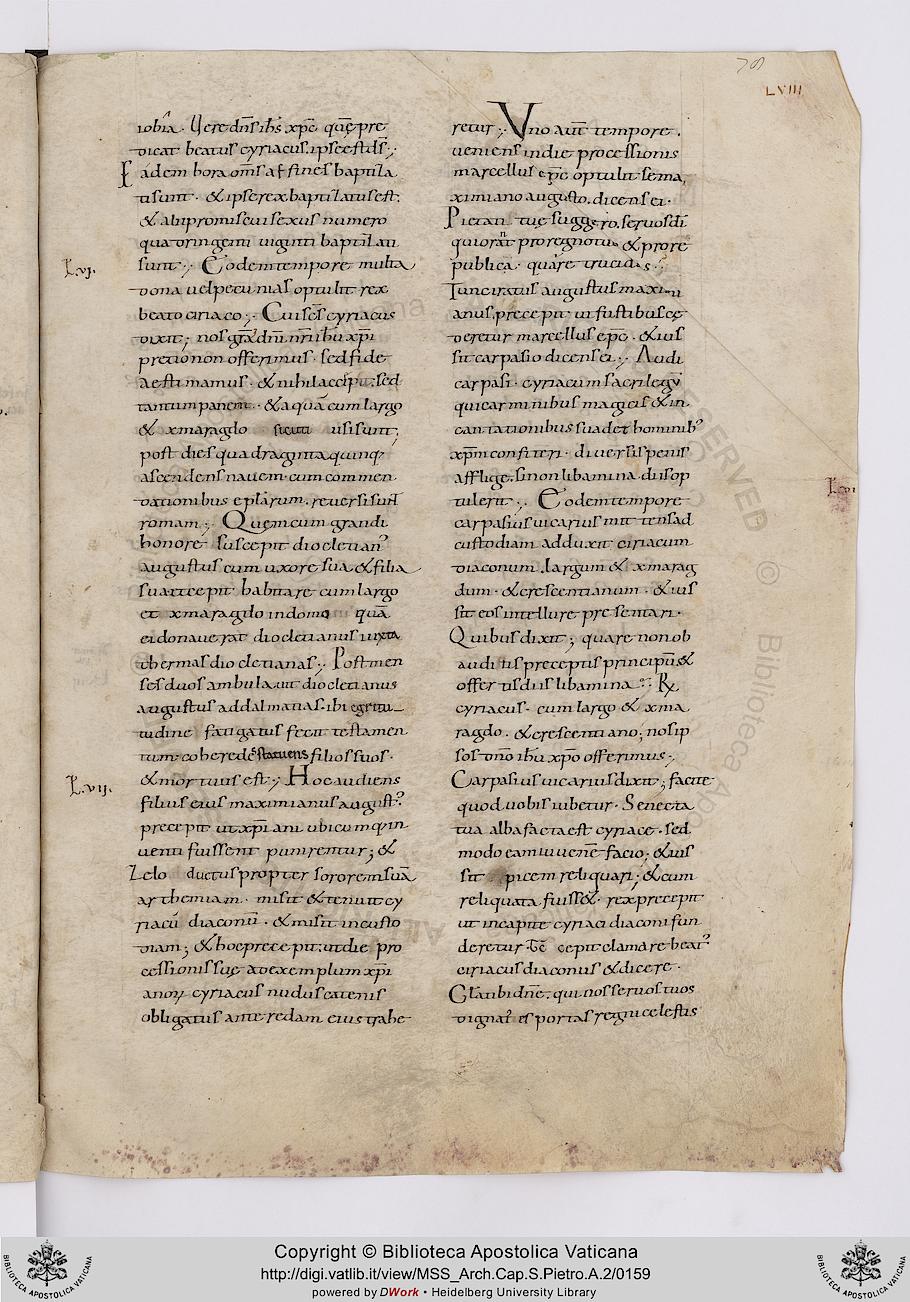 LVIII
iobia · Vere dn̄s ih̄s xp̄c · quę pre
dicat beatus cyriacus. ipse est dś;
Eadem hora om̄s affines baptiza
ti sunt · & ipse rex baptizatus est ·
& ali promiscui sexus numero
quadringenti uiginti baptizati
L.vj.
sunt; Eodem tempore multa
dona uel pecunias optulit rex
beato ciriaco; Cui sc̄s cyriacus
dixit; nos grā dn̄i nr̄i ih̄u xp̄i
pretio non offerimus · sed fide
aestimamus · & nihil accepit; sed
tantum panem · & aquā cum largo
& xmaragdo sicuti usi sunt;
post dies quadraginta quinq;
ascendens nauem cum commen
dationibus eplarum · reuersi sunt
romam; Quem cum grandi
honore suscepit diocletian'
augustus cum uxore sua & filia
sua et cepit habitare cum largo
et xmaragdo in domo quā
ei donauerat diocletianus iuxta
thermas diocletianas; Post men
ses duos ambulauit diocletianus
augustus ad dalmatias. ibi egritu
tudine fatigatus fecit testamen
tum coheredes statuens filios suos ·
L.vij.
& mortuus est; Hoc audiens
filius eius maximianus august'
precepit ut xp̄iani ubicumq; in
uenti fuissent punirentur; &
zelo ductus propter sororem suā
arthemiam · misit & tenuit cy
riacū diaconū · & misit in custo
diam; & hoc precepit; ut die pro
cessionis suę ad exemplum xp̄i
anoꝝ cyriacus nudus catenis
obligatus ante redam eius trahe
retur; Uno aut̄ tempore ·
ueniens in die processionis
marcellus ep̄c optulit se ma
ximiano augusto. dicens ei ·
Pietati tuę suggero. seruos dī
qui orant pro regno tuo & pro re
publica · quare trucidas?
Tunc iratus augustus maximi
anus, precepit ut fustibus cę
deretur marcellus ep̄c · & ius
sit carpasio dicens ei; Audi
carpasi · cyriacum sacrilegū
qui carminibus magicis & in
cantationibus suadet hominib'
xp̄m confiteri · diuersis penis
afflige. si non libamina diis op
tulerit; Eodem tempore
carpasius uicarius mittens ad
custodiam adduxit ciriacum
diaconum. largum & xmarag
dum · & crescentianum · & ius
sit eos in tellure presentari ·
Quibus dixit; quare non ob
auditis preceptis principū &
offertis diis libamina; R̸
cyriacus · cum largo & xma
ragdo · & crescentiano; nos ip
sos dn̄o ih̄u xp̄o offerimus;
Carpasius uicarius dixit; facite
quod uobis iubetur · Senecta
tua alba facta est cyriace · sed
modo eam iuuenē facio; & ius
sit picem reliquari; & cum
reliquata fuiss& · rex precepit
ut in capite cyriaci diaconi fun
deretur Tc̄ cepit clamare beat'
ciriacus diaconus & dicere ·
Glā tibi dn̄e · qui nos seruos tuos
dignar' es portas regni celestis
Copyright © Biblioteca Apostolica Vaticana
http://digi.vatlib.it/view/MSS_Arch.Cap.S.Pietro.A.2/0159
powered by DWork • Heidelberg University Library
BIBLIOTECA APOSTOLICA VATICANA
BIBLIOTECA APOSTOLICA VATICANA